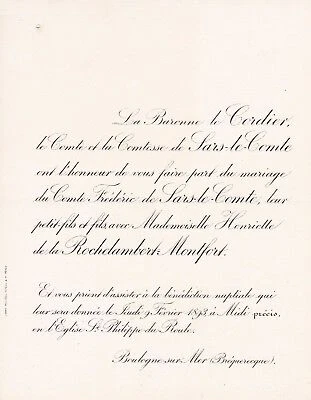 La Baronne le Cordier,
le Comte et la Comtesse de Sars-le-Comte
ont l'honneur de vous faire part du mariage
du Comte Frédéric de Sars-le-Comte, leur
petit-fils et fils avec Mademoiselle Henriette
de la Rochelambert-Montfort.
Et vous prient d'assister à la bénédiction nuptiale qui
leur sera donnée le Jeudi 9 Février 1893, à Midi précis,
en l'Eglise St Philippe-du-Roule.
Boulogne-sur-Mer (Bréquerecque).